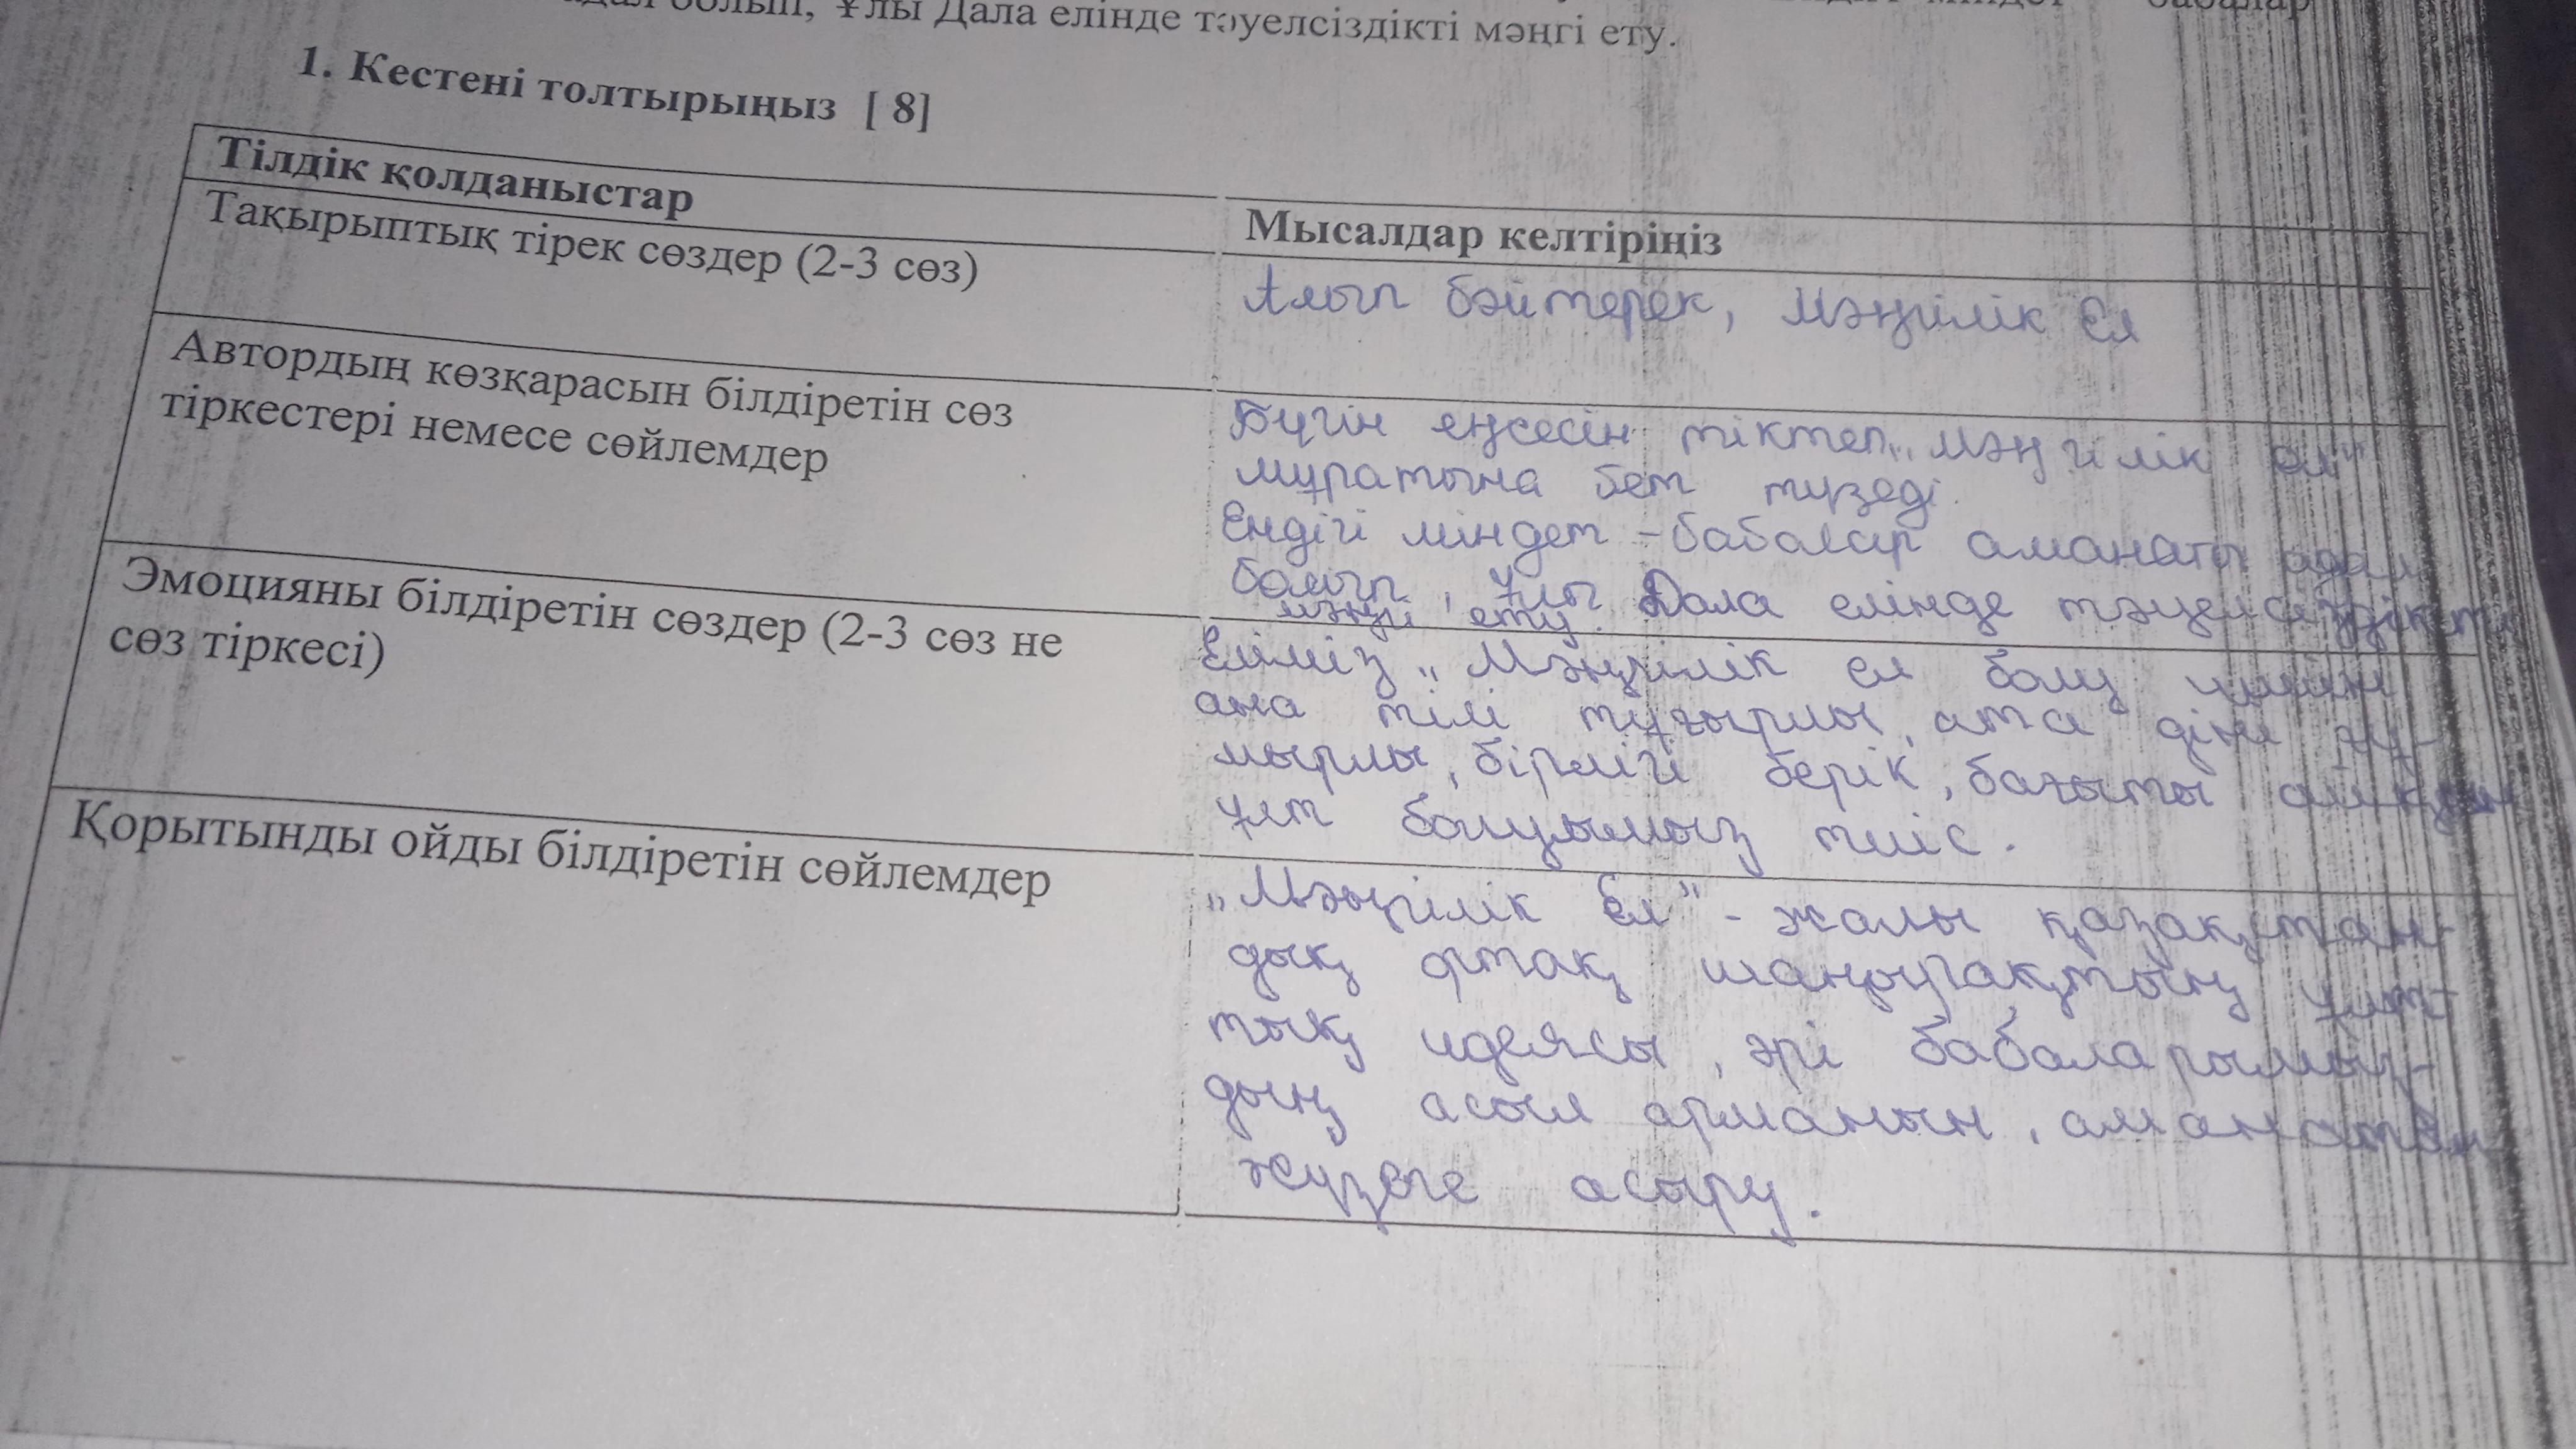 адал болып, Ұлы Дала елінде тәуелсіздікті мәңгі ету.
1. Кестені толтырыңыз [ 8]
Тілдік қолданыстар
Мысалдар келтіріңіз
Тақырыптық тірек сөздер (2-3 сөз)
Алып бәйтерек, Мәңгілік Ел
Автордың көзқарасын білдіретін сөз
тіркестері немесе сөйлемдер
Бүгін еңсесін тіктеп „Мәңгілік ел"
мұратына бет түзеді.
Ендігі міндет - бабалар аманаты адал
болып, Ұлы Дала елінде тәуелсіздікті
мәңгі ету.
Эмоцияны білдіретін сөздер (2-3 сөз не
сөз тіркесі)
Еліміз „Мәңгілік ел болу үшін
ана тілі тұғырлы, ата діні ғұ-
мырлы, бірлігі берік, бағыты айқын
ұлт болуымыз тиіс.
Қорытынды ойды білдіретін сөйлемдер
„Мәңгілік Ел" - жалы қазақстан-
дық ортақ шаңырақтың ұлт-
тық идеясы, әрі бабаларымыз-
дың асыл арманын, аманатын
жүзеге асыру.